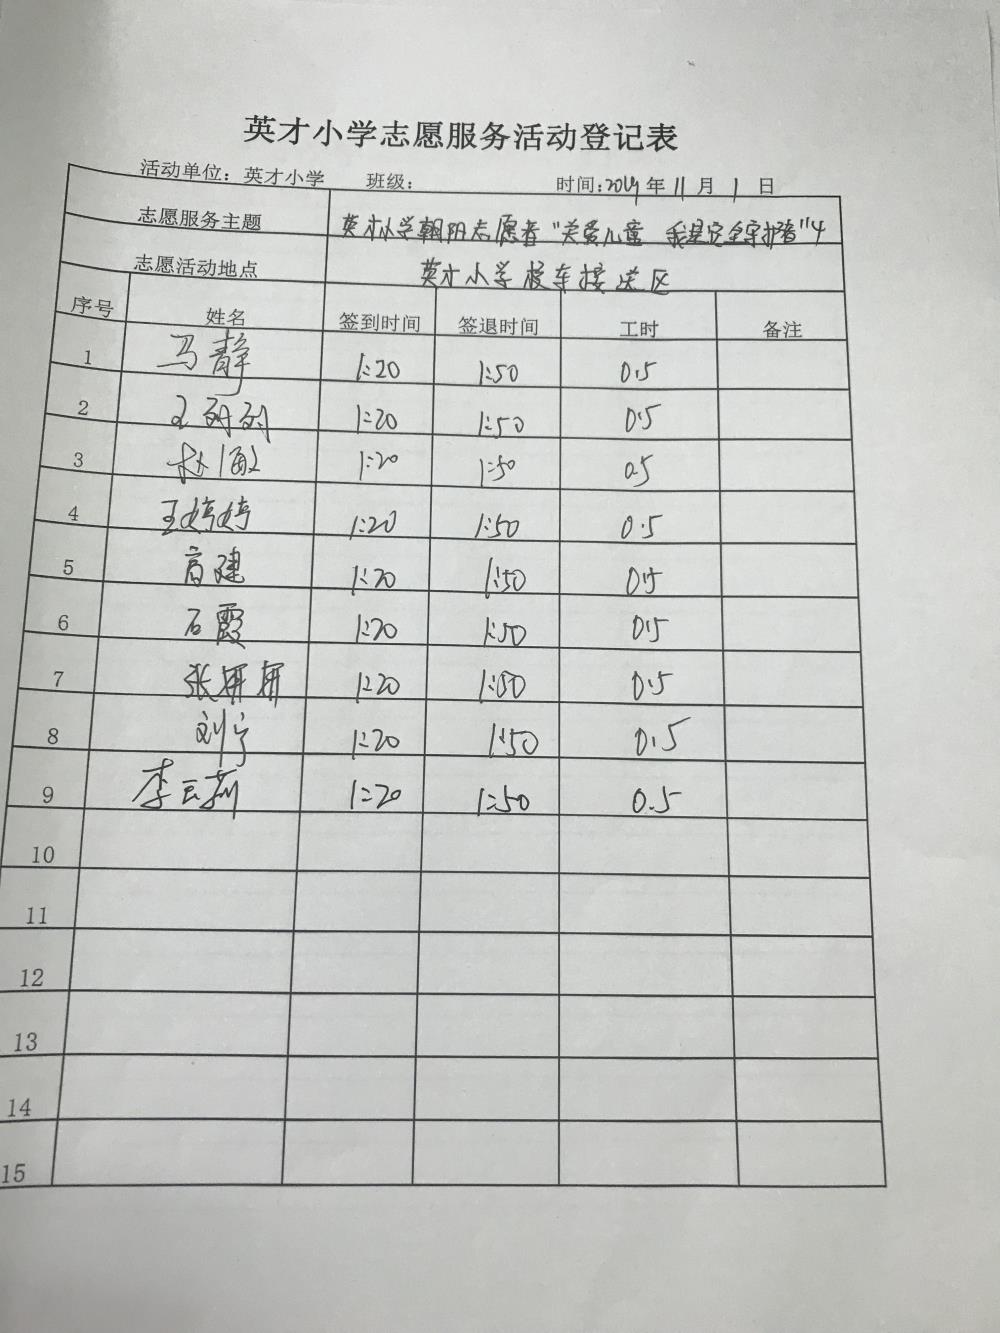 英才小学志愿服务活动登记表
活动单位：英才小学 班级： 时间：2019年11月1日
志愿服务主题 英才小学朝阳志愿者"关爱儿童 我是安全守护者"4
志愿活动地点 英才小学校车接送区
序号 姓名 签到时间 签退时间 工时 备注
1 马静 1:20 1:50 0.5
2 王 1:20 1:50 0.5
3 赵敏 1:20 1:50 0.5
4 王婷婷 1:20 1:50 0.5
5 高建 1:20 1:50 0.5
6 石霞 1:20 1:50 0.5
7 张妍妍 1:20 1:50 0.5
8 刘宁 1:20 1:50 0.5
9 李云莉 1:20 1:50 0.5
10
11
12
13
14
15